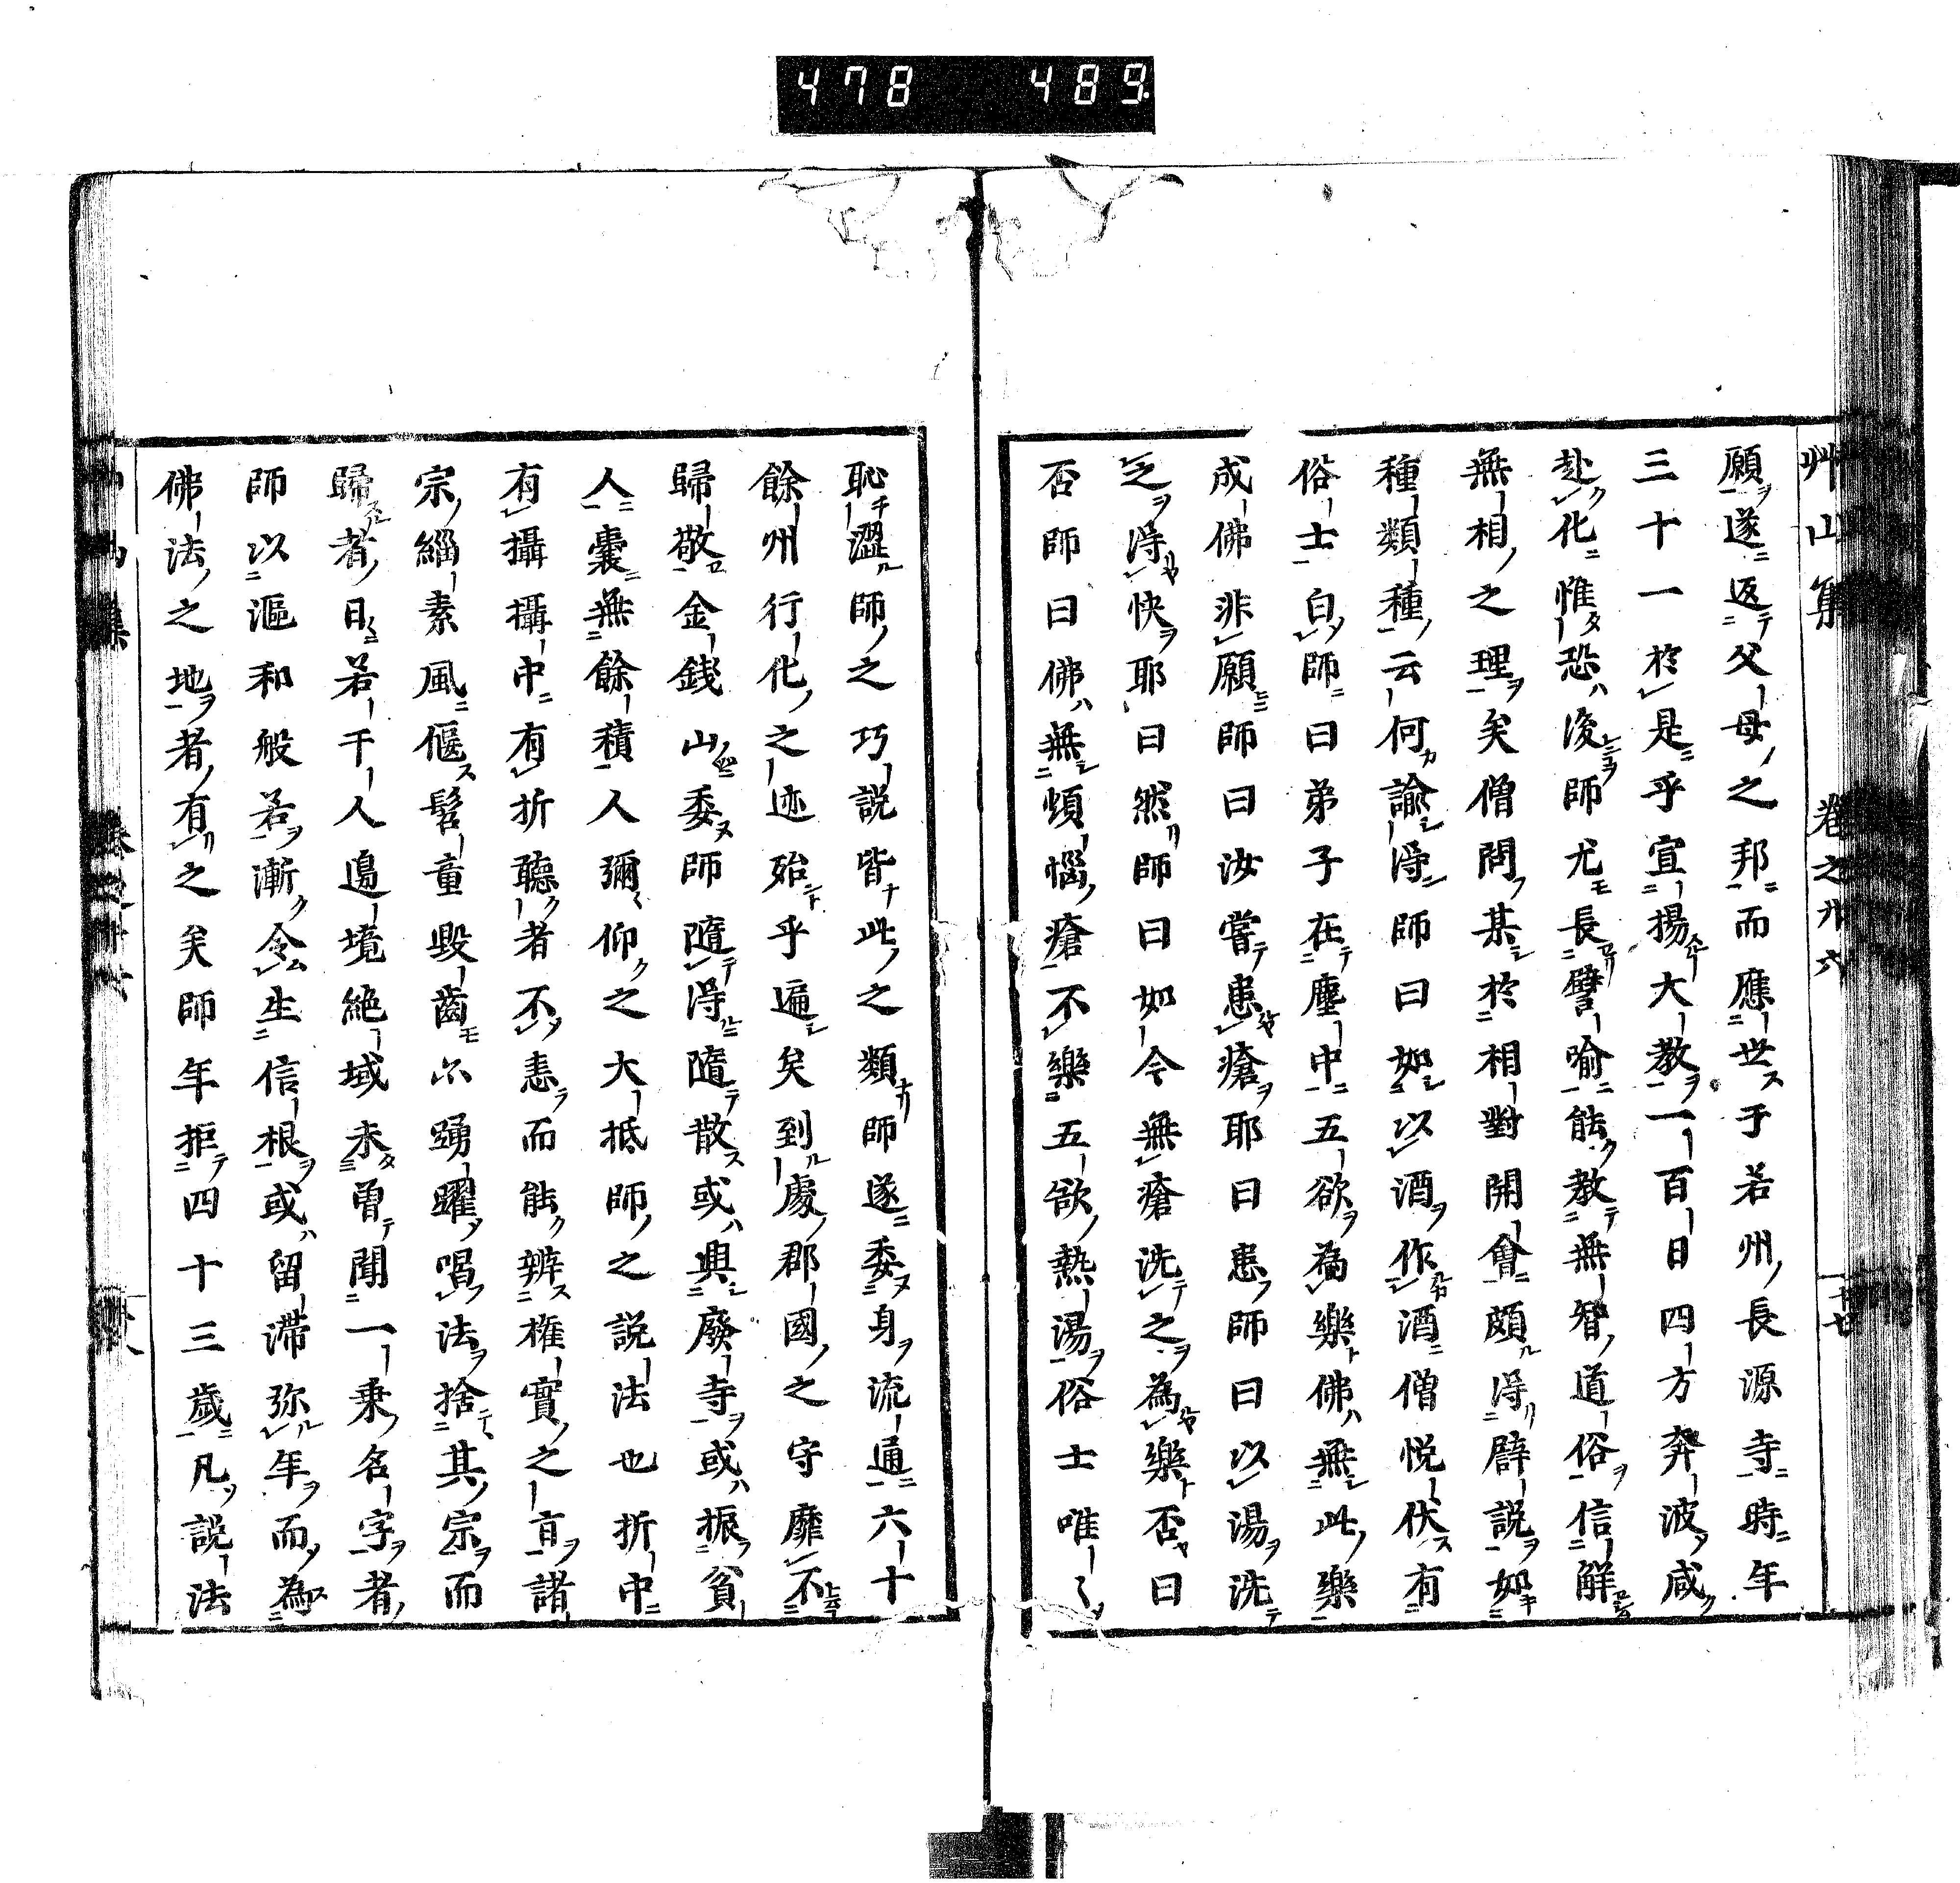 478 489
艸山集 卷之廿六 十七
願遂返父母之邦而應世于若州長源寺時年
三十一於是乎宣揚大教一百日四方奔波咸
赴化惟恐後師尤長譬喻能教無智道俗信解
無相之理矣僧問某於相對開會頗得辟説如
種類種云何諭得師曰如以酒作酒僧悅伏有
俗士白師曰弟子在塵中五欲為樂佛無此樂
成佛非願師曰汝嘗患瘡耶曰患師曰以湯洗
之得快耶曰然師曰如今無瘡洗之為樂否曰
否師曰佛無煩惱瘡不樂五欲熱湯俗士唯〻
恥澀師之巧説皆此之類師遂委身流通六十
餘州行化之迹殆乎遍矣到處郡國之守靡不
歸敬金錢山委師隨得隨散或興廢寺或振貧
人囊無餘積人彌仰之大抵師之説法也折中
有攝攝中有折聽者不恚而能辨權實之㫖諸
宗緇素風偃髫童毀齒亦踴躍唱法捨其宗而
歸者日若干人邉境絶域未曾聞一乗名字者
師以漚和般若漸令生信根或留滯弥年而為
佛法之地者有之矣師年拒四十三歳凡説法